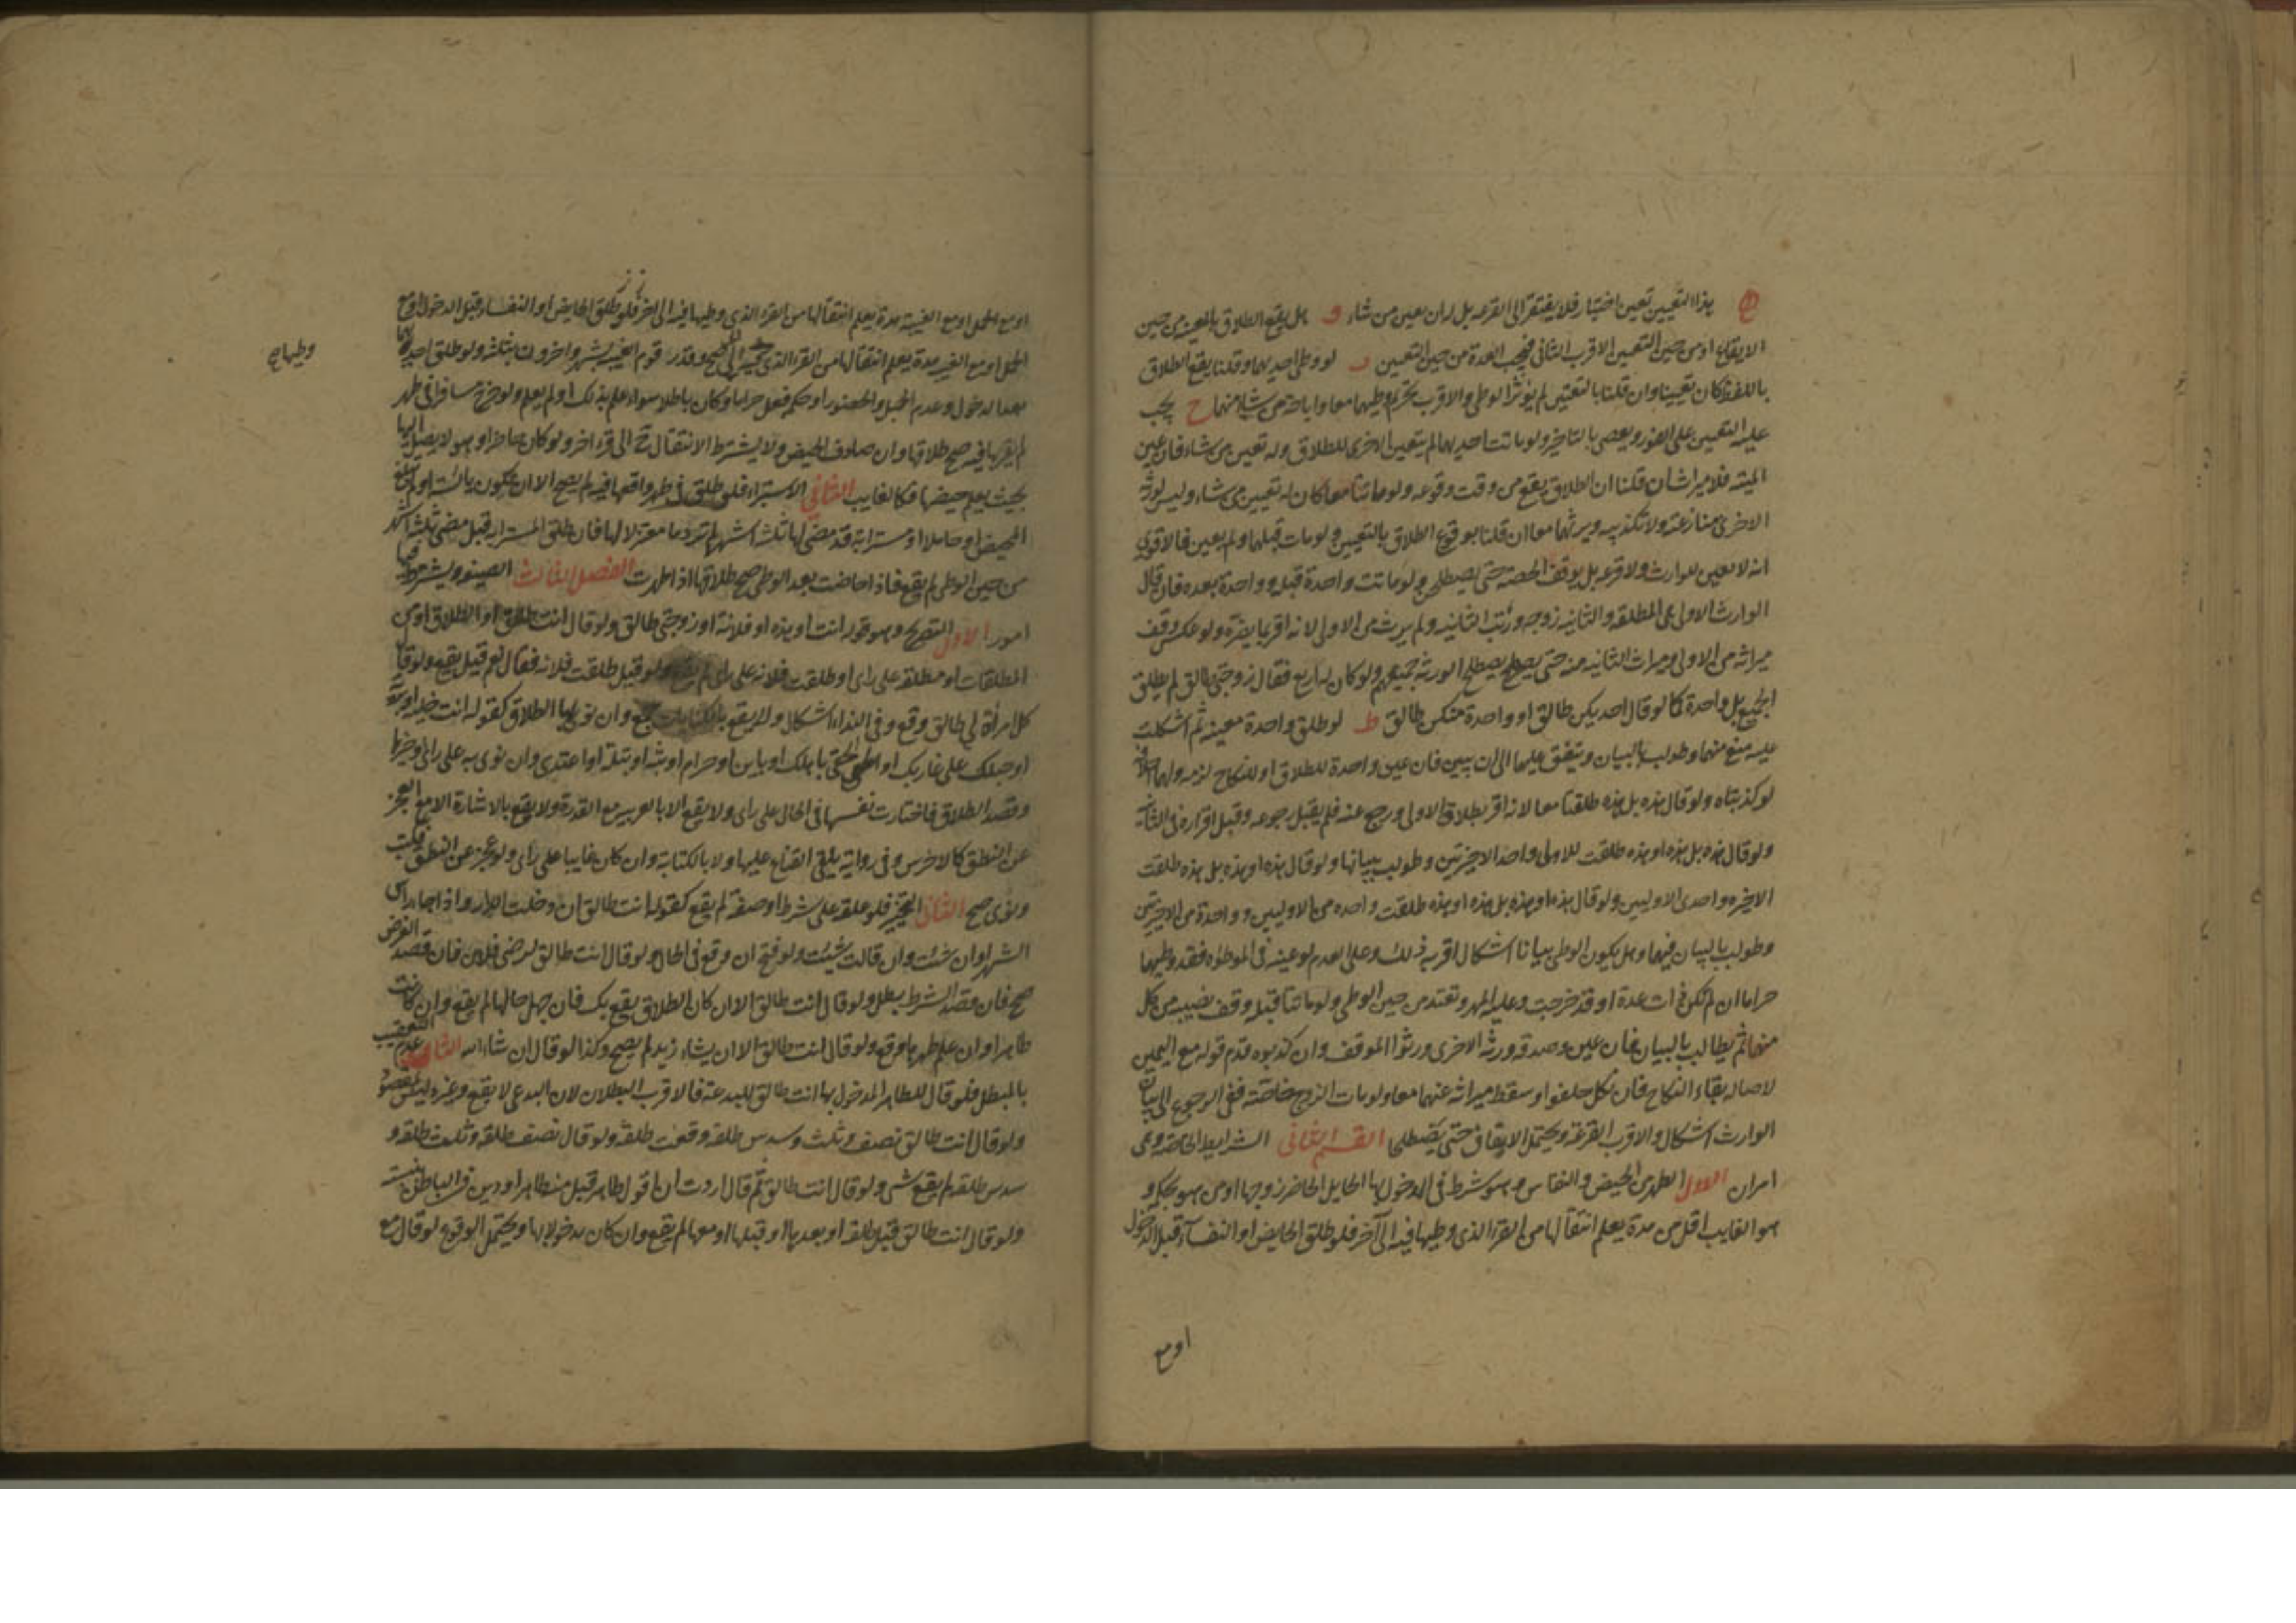 هذا التعيين تعين اختيار فلا يفتقر الى القرعه بل له ان يعين من شاء و هل يقع الطلاق بالمعينه من حين
الايقاع او من حين التعيين الاقرب الثانى فيجب العدة من حين التعيين ر لو وطى احديهما وقلنا يقع الطلاق
باللفظ كان تعيينا وان قلنا بالتعيين لم يؤثر الوطى والاقرب تحريم وطيهما معا واباحة من شاء منهما ح يجب
عليه التعيين على الفور ويعصى بالتاخير ولو ماتت احديهما لم يتعين الاخرى للطلاق وله تعيين من شاء فان عين
الميته فلا ميراث ان قلنا ان الطلاق يقع من وقت وقوعه ولو ماتتا معا كان له تعيين من شاء وليس لورثة
الاخرى منازعته ولا تكذيبه ويرثهما معا ان قلنا بوقوع الطلاق بالتعيين ولو مات قبلهما ولم يعين فالاقوى
انه لا تعيين للوارث ولا قرعه بل يوقف الحصه حتى يصطلحن ولو ماتت واحدة قبله وواحدة بعده فان قال
الوارث الاولى هى المطلقه والثانيه زوجه ورثت الثانيه ولم يرث من الاولى لانه اقر بما يضره ولو عكس وقف
ميراثه من الاولى وميراث الثانيه منه حتى يصطلح الورثه جميعهم ولو كان له اربع فقال زوجتى طالق لم يطلق
الجميع بل واحدة كما لو قال احديكن طالق او واحدة منكن طالق ط لو طلق واحدة معينه ثم اشكلت
عليه منع منهما وطولب بالبيان وينفق عليهما الى ان يبين فان عين واحدة للطلاق او للنكاح لزمه ولهما احلافه
لو كذبتاه ولو قال هذه بل هذه طلقتا معا لانه اقر بطلاق الاولى ورجع عنه فلم يقبل رجوعه وقبل اقراره فى الثانيه
ولو قال هذه بل هذه او هذه طلقت الاولى واحد الاخيرتين وطولب ببيانها ولو قال هذه او هذه بل هذه طلقت
الاخيره واحدى الاوليين ولو قال هذه او هذه بل هذه او هذه طلقت واحده من الاوليين وواحدة من الاخيرتين
وطولب بالبيان فيهما وهل يكون الوطى بيانا اشكال اقربه ذلك وعلى العدم لو عينه فى الموطؤه فقد وطيها
حراما ان لم تكن ذات عدة او قد خرجت وعليه المهر وتعتد من حين الوطى ولو ماتتا قبله وقف نصيبه من كل
منهما ثم يطالب بالبيان فان عين وصدقه ورثة الاخرى ورثوا الموقف وان كذبوه قدم قوله مع اليمين
لاصالة بقاء النكاح فان نكل حلفوا وسقط ميراثه عنهما معا ولو مات الزوج خاصة ففى الرجوع الى بيان
الوارث اشكال والاقرب القرعة ويحتمل الايقاف حتى يصطلحا القسم الثانى الشرايط الخاصه وهى
امران الاول الطهر من الحيض والنفاس وهو شرط فى المدخول بها الحايل الحاضر زوجها او من هو بحكمه و
هو الغايب اقل من مدة يعلم انتقالها من القرء الذى وطيها فيه الى آخر فلو طلق الحايض او النفساء قبل الدخول
او مع
او مع الحمل او مع الغيبة مدة يعلم انتقالها من القرء الذى وطيها فيه الى اخر فلو طلق الحايض او النفساء قبل الدخول او مع
الحمل او مع الغيبه مدة يعلم انتقالها من القرء الذى الى صح وقدر قوم الغيبه بشهر واخرون بثلثه ولو طلق احديهما
بعد الدخول وعدم الحبل والحضور او حكمه فعل حراما وكان باطلا سواء علم بذلك او لم يعلم ولو خرج مسافرا فى طهر
لم يقربها فيه صح طلاقها وان صادف الحيض ولا يشترط الانتقال ح الى قرء اخر ولو كان حاضرا وهو لا يصل اليها
بحيث يعلم حيضها فكالغايب الثانى الاستبراء فلو طلق فى طهر واقعها فيه لم يصح الا ان تكون يائسة او لم تبلغ
المحيض او حاملا او مسترابة قد مضى لها ثلثه اشهر لم تر دما معتزلا لها فان طلق المسترابه قبل مضى ثلثه اشهر
من حين الوطى لم يقع فاذا حاضت بعد الوطى صح طلاقها اذا طهرت الفصل الثالث الصيغه ويشترط فيها
امور الاول التصريح وهو قوله انت او هذه او فلانة او زوجتى طالق ولو قال انت طلاق او الطلاق او من
المطلقات او مطلقة على راى او طلقت فلانه على راى لم يقع ولو قيل طلقت فلانه فقال نعم قيل يقع ولو قال
كل امرأة لى طالق وقع وفى النداء اشكال ولا يقع بالكنايات جمع وان نوى بها الطلاق كقوله انت خليه او بريه
او حبلك على غاربك او الحقى باهلك او باين او حرام او بته او بتله او اعتدى وان نوى به على راى او خيرها
وقصد الطلاق فاختارت نفسها فى الحال على راى ولا يقع الا بالعربيه مع القدرة ولا يقع بالاشارة الا مع العجز
عن النطق كالاخرس وفى رواية يلقى القناع عليها ولا بالكتابة وان كان غايبا على راى ولو عجز عن النطق فكتب
ونوى صح الثانى التنجيز فلو علقه على شرط او صفة لم يقع كقوله انت طالق ان دخلت الدار او اذا جاء راس
الشهر او ان شئت وان قالت شئت ولو فتح ان وقع فى الحال ولو قال انت طالق لرضى فلان فان قصد الغرض
صح فان قصد الشرط بطل ولو قال انت طالق الان ان كان الطلاق يقع بك فان جهل حالها لم يقع وان كانت
طاهرا وان علم طهرها وقع ولو قال انت طالق الا ان يشاء زيد لم يصح وكذا لو قال ان شاء الله الثالث عدم التعقيب
بالمبطل فلو قال للطاهر المدخول بها انت طالق للبدعة فالاقرب البطلان لان البدعى لا يقع وغيره ليس بمقصود
ولو قال انت طالق نصف وثلث وسدس طلقة وقعت طلقة ولو قال نصف طلقه وثلث طلقه و
سدس طلقه لم يقع شى ولو قال انت طالق ثم قال اردت ان اقول طاهر قبل منه ظاهرا ودين فى الباطن بنيته
ولو قال انت طالق قبل طلقه او بعدها او قبلها او معها لم يقع وان كان مدخولا بها ويحتمل الوقوع لو قال مع
وطيها صح